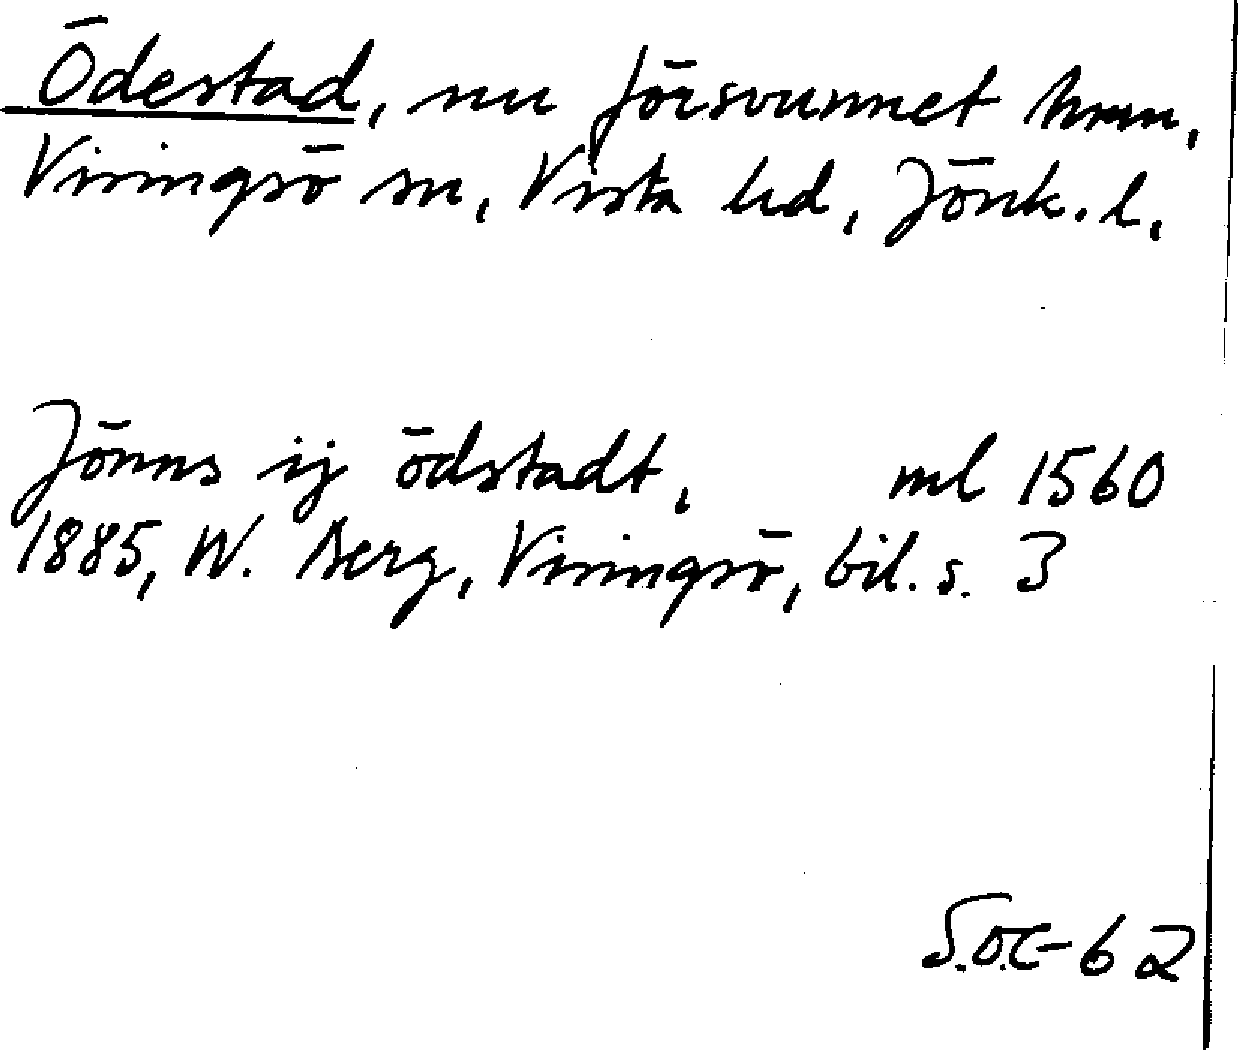 Ödestad, nu försvunnet hmn,
Visingsö sn, Vista hd, Jönk. l,
Jönns ij ödstadt, ml 1560
1885, W. Berg, Visingsö, bil. s. 3
S.O.C-62